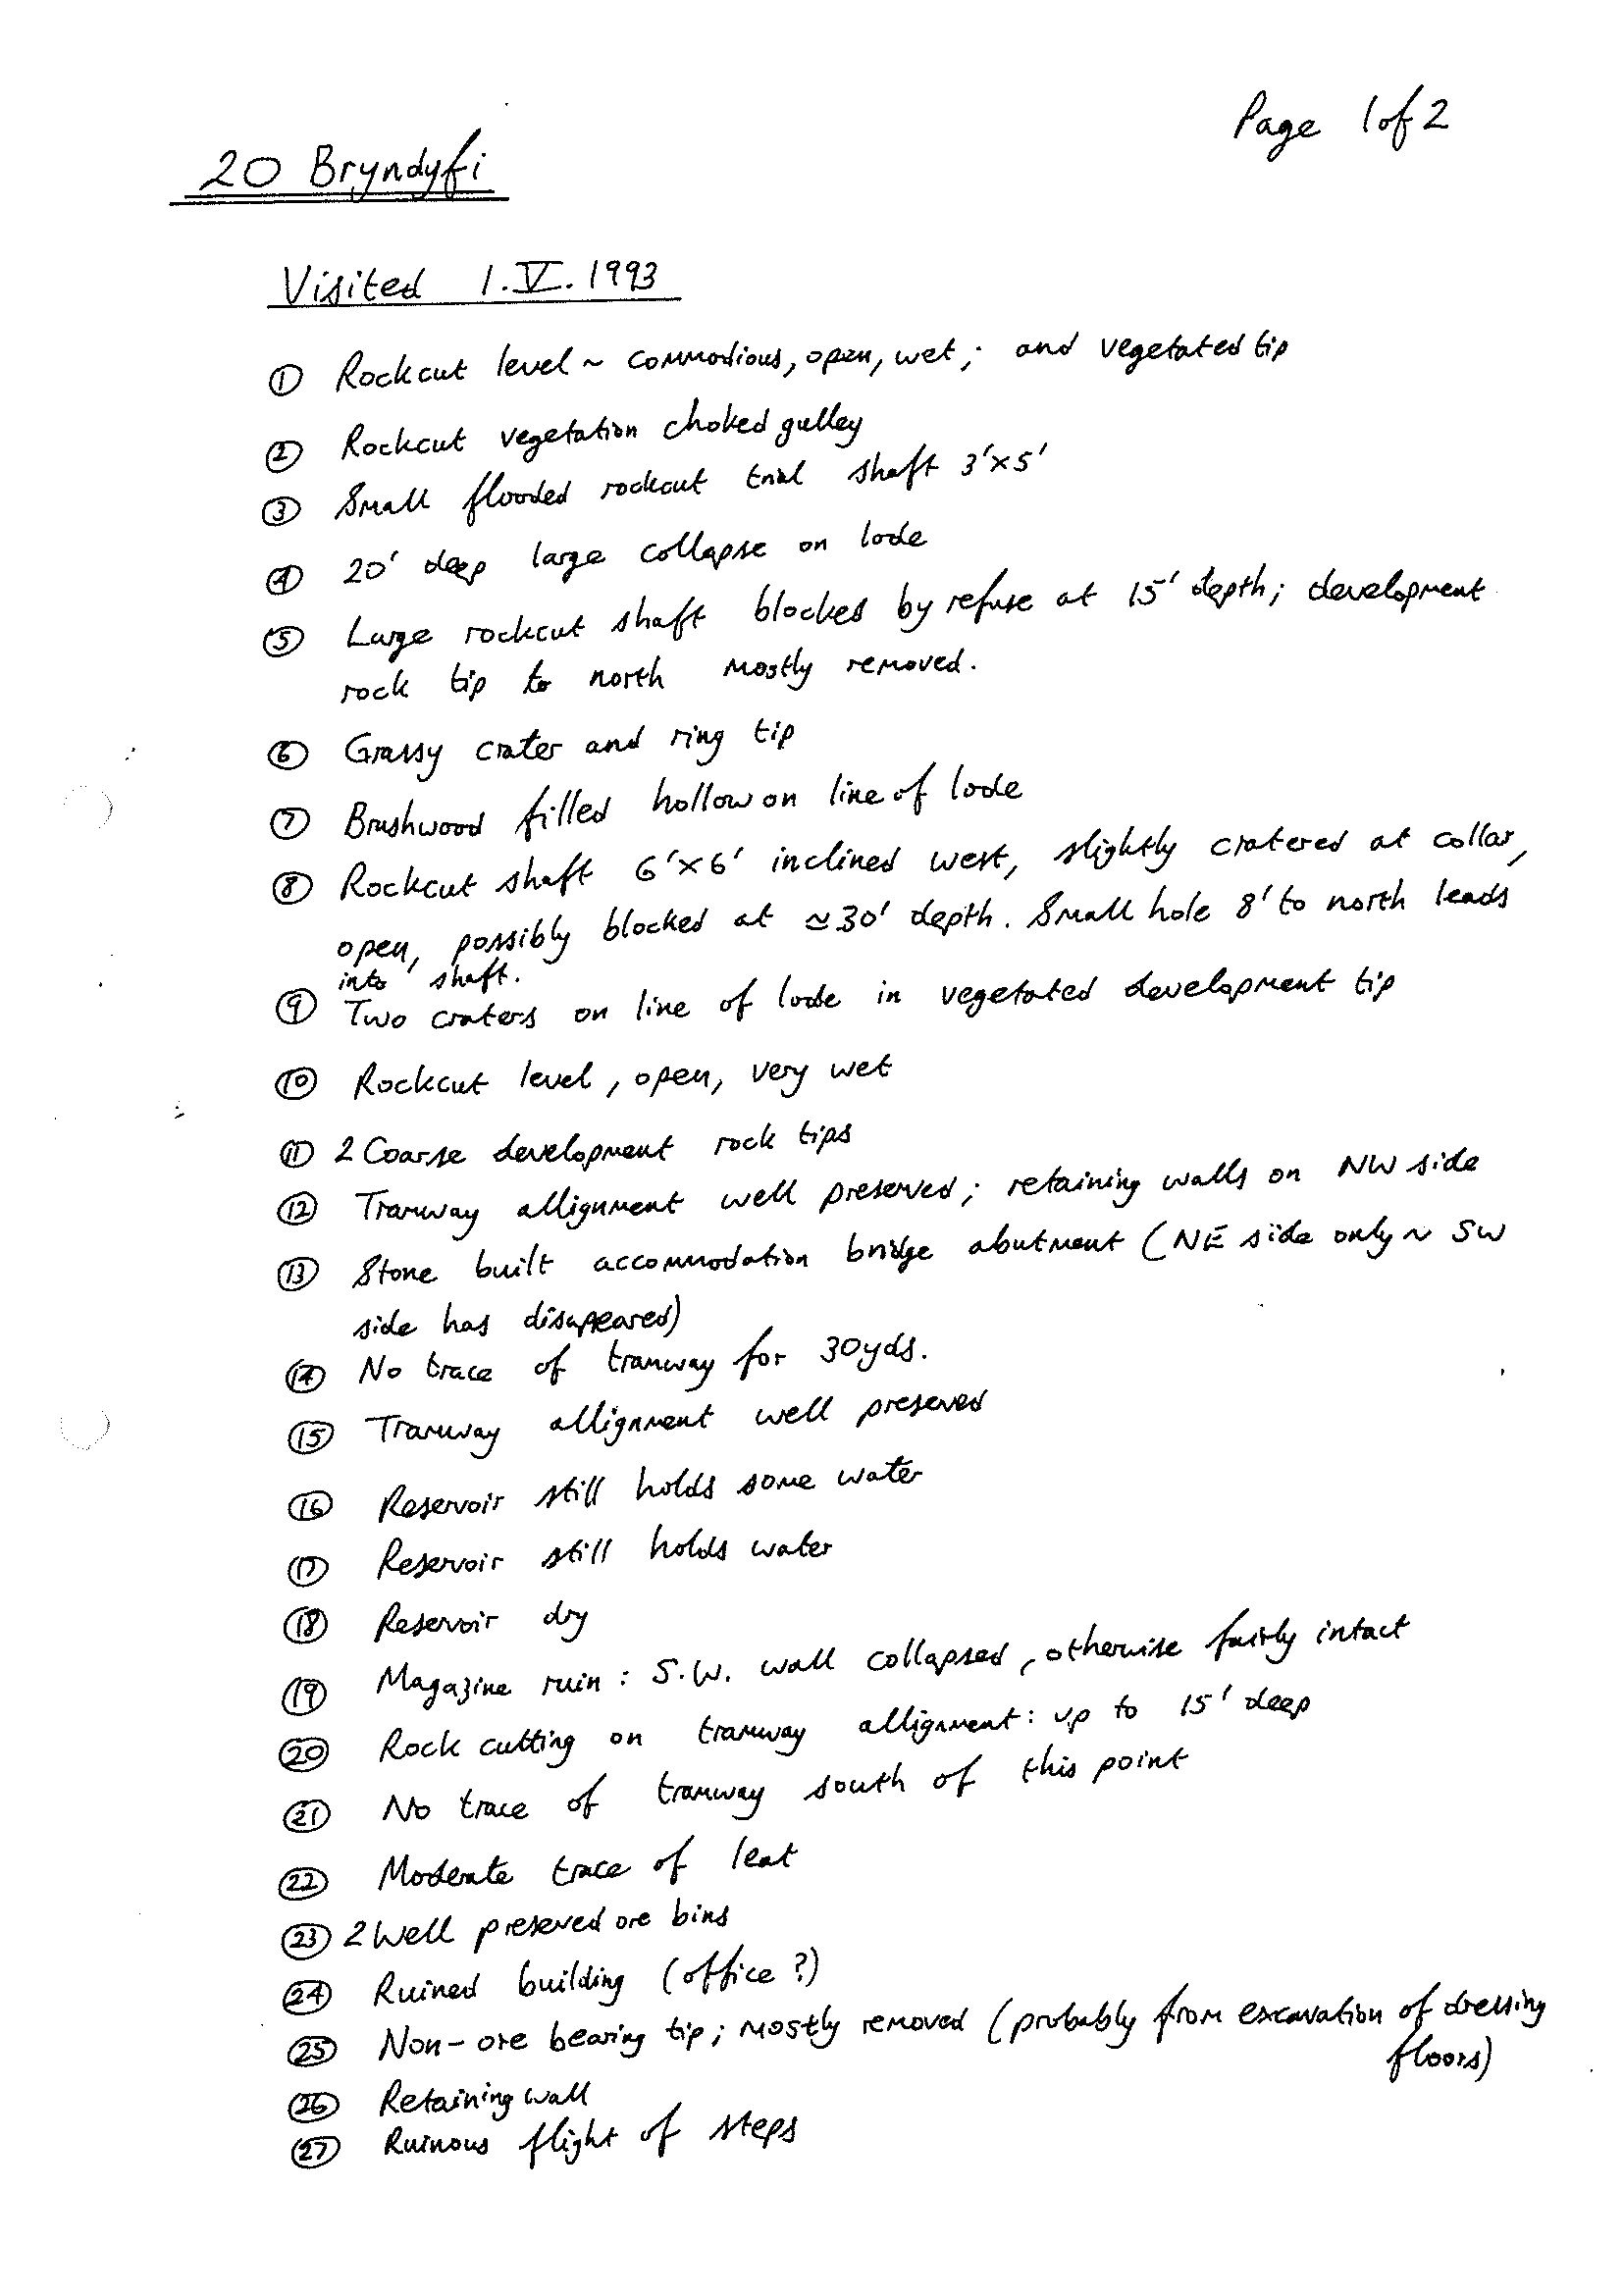 Page 1 of 2
20 Bryndyfi
Visited 1.V.1993
① Rockcut level ~ commodious, open, wet; and vegetated tip
② Rockcut vegetation choked gulley
③ Small flooded rockcut trial shaft 3'x5'
④ 20' deep large collapse on lode
⑤ Large rockcut shaft blocked by refuse at 15' depth; development
rock tip to north mostly removed.
⑥ Grassy crater and ring tip
⑦ Brushwood filled hollow on line of lode
⑧ Rockcut shaft 6'x6' inclined west, slightly cratered at collar,
open, possibly blocked at ≃30' depth. Small hole 8' to north leads
into shaft.
⑨ Two craters on line of lode in vegetated development tip
⑩ Rockcut level, open, very wet
⑪ 2 Coarse development rock tips
⑫ Tramway allignment well preserved; retaining walls on NW side
⑬ Stone built accommodation bridge abutment (NE side only ~ SW
side has disapeared)
⑭ No trace of tramway for 30yds.
⑮ Tramway allignment well preserved
⑯ Reservoir still holds some water
⑰ Reservoir still holds water
⑱ Reservoir dry
⑲ Magazine ruin: S.W. wall collapsed, otherwise fairly intact
⑳ Rock cutting on tramway allignment: up to 15' deep
㉑ No trace of tramway south of this point
㉒ Moderate trace of leat
㉓ 2 Well preserved ore bins
㉔ Ruined building (office?)
㉕ Non-ore bearing tip; mostly removed (probably from excavation of dressing
floors)
㉖ Retaining wall
㉗ Ruinous flight of steps